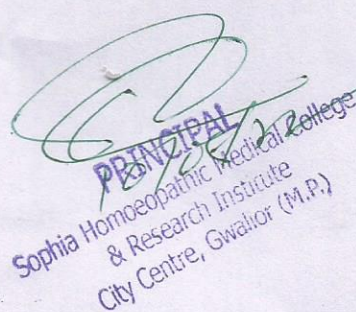 PRINCIPAL
Sophia Homoeopathic Medical College
& Research Institute
City Centre, Gwalior (M.P.)